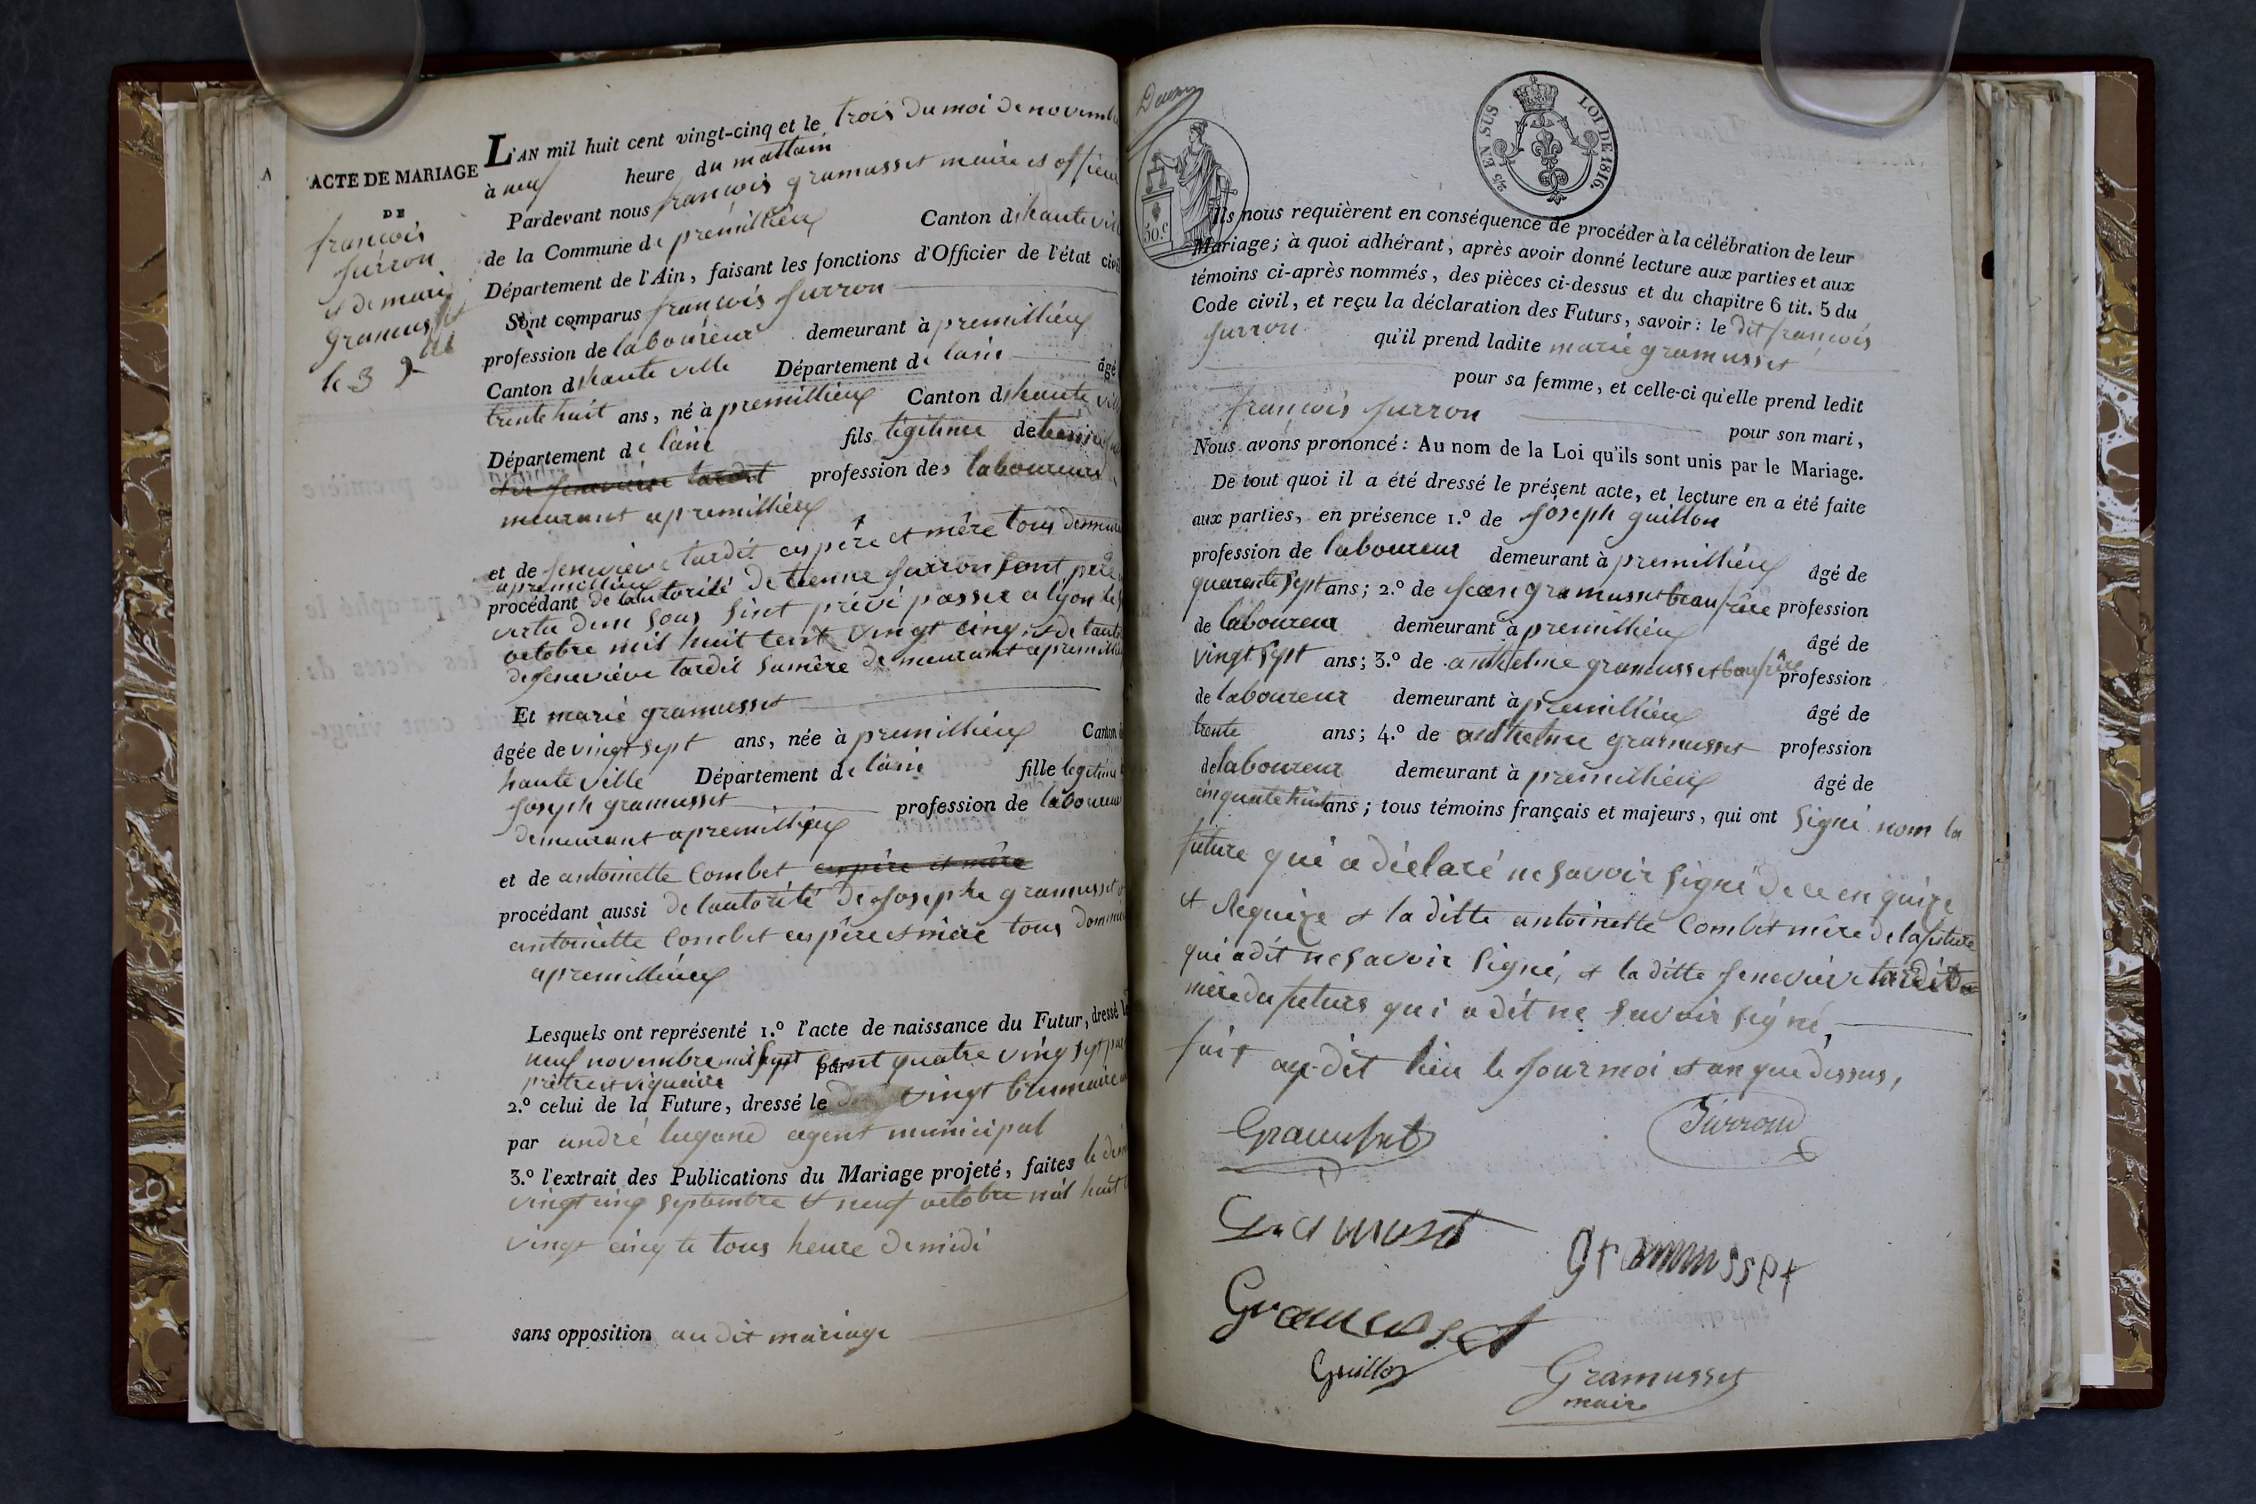 ACTE DE MARIAGE
DE
françois
jurron
et de marie
Gramusset
le 3 9bre
L'AN mil huit cent vingt-cinq et le trois du moi de novembre
à neuf heure du mattain
Pardevant nous françois gramusset maire et officier
de la Commune de premillieux Canton d'hauteville
Département de l'Ain, faisant les fonctions d'Officier de l'état civil
Sont comparus françois jurron
profession de laboureur demeurant à premillieux
Canton d'haute ville Département de lain âgé
trente huit ans, né à premillieux Canton d'haute ville
Département de lain fils légitime de
profession des laboureurs
meurant a premillieux
et de jenevieve tardit ces père et mère tous
a premillieux
procédant de lautorité de etienne jurron sont père
vertu d'un sous sint prévé passer a lyon le
octobre mil huit cent vingt cinq et de
de jenevieve tardit sa mère demeurant a premillieux
Et marie gramusset
âgée de vingt sept ans, née à premillieux Canton
haute ville Département de lain fille legitime
joseph gramusset profession de laboureur
demeurant a premillieux
et de antoinette Combet ces père et mère
procédant aussi de lautorité de joseph gramusset
antoinette Combet ces père et mère tous
a premillieux
Lesquels ont représenté 1.º l'acte de naissance du Futur, dressé le
neuf novembre mil sept cent quatre ving sept par
prètre et viquaire
2.º celui de la Future, dressé le vingt brumaire
par andré lugand agent municipal
3.º l'extrait des Publications du Mariage projeté, faites le
vingt cinq septembre et neuf octobre mil huit
vingt cinq à tous heure de midi
sans opposition au dit mariage
5/2 EN SUS LOI DE 1816.
50.c
Ils nous requièrent en conséquence de procéder à la célébration de leur
Mariage; à quoi adhérant, après avoir donné lecture aux parties et aux
témoins ci-après nommés, des pièces ci-dessus et du chapitre 6 tit. 5 du
Code civil, et reçu la déclaration des Futurs, savoir: le dit françois
jurron qu'il prend ladite marie gramusset
pour sa femme, et celle-ci qu'elle prend ledit
françois jurron pour son mari,
Nous avons prononcé: Au nom de la Loi qu'ils sont unis par le Mariage.
De tout quoi il a été dressé le présent acte, et lecture en a été faite
aux parties, en présence 1.º de joseph guillon
profession de laboureur demeurant à premillieux âgé de
quarente sept ans; 2.º de jean gramusset beau frère profession
de laboureur demeurant à premillieux âgé de
vingt sept ans; 3.º de anthelme gramusset beau frère profession
de laboureur demeurant à premillieux âgé de
trente ans; 4.º de anthelme gramusset profession
de laboureur demeurant à premillieux âgé de
cinquante huit ans; tous témoins français et majeurs, qui ont signé nom la
future qui a déclaré ne savoir signé de ce en quize
et requize et la ditte antoinette Combet mère de la future
qui a dit ne savoir signé, et la ditte jenevieve tardit
mère du futurs qui a dit ne savoir signé,
fait au dit lieu le jour moi et an que dessus,
Gramusset
Jurron
Gramuset
Gramusset
Gramusset
Guillon
Gramusset
maire